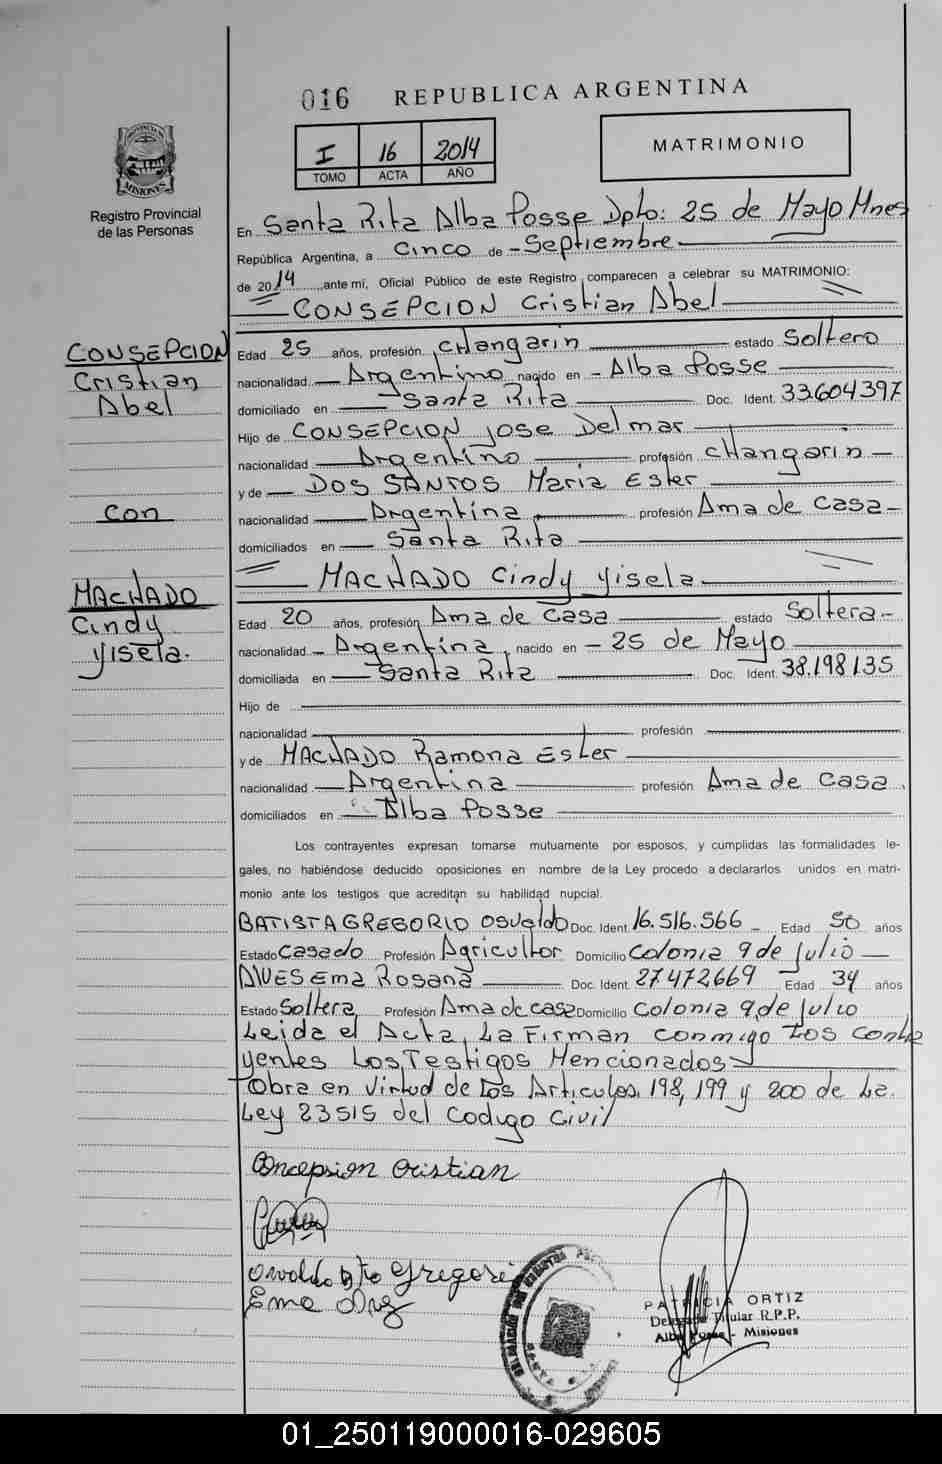 016 REPUBLICA ARGENTINA
I 16 2014
TOMO ACTA AÑO
MATRIMONIO
PROVINCIA DE
MISIONES
Registro Provincial
de las Personas
En Santa Rita Alba Posse Dpto: 25 de Mayo Mnes
República Argentina, a Cinco de - Septiembre
de 2014, ante mí, Oficial Público de este Registro comparecen a celebrar su MATRIMONIO:
CONSEPCION Cristian Abel
CONSEPCION
Cristian
Abel
Edad 25 años, profesión, CHangarin estado Soltero
nacionalidad Argentino nacido en - Alba Posse
domiciliado en Santa Rita Doc. Ident. 33.604.397
Hijo de CONSEPCION Jose Delmar
nacionalidad Argentino profesión CHangarin
y de DOS SANTOS Maria Ester
con
nacionalidad Argentina profesión Ama de Casa
domiciliados en Santa Rita
MACHADO Cindy Yisela
MACHADO
Cindy
Yisela.
Edad 20 años, profesión Ama de Casa estado Soltera
nacionalidad Argentina, nacido en - 25 de Mayo
domiciliada en Santa Rita Doc. Ident. 38.198.135
Hijo de
nacionalidad profesión
y de MACHADO Ramona Ester
nacionalidad Argentina profesión Ama de Casa.
domiciliados en Alba Posse
Los contrayentes expresan tomarse mutuamente por esposos, y cumplidas las formalidades le-
gales, no habiéndose deducido oposiciones en nombre de la Ley procedo a declararlos unidos en matri-
monio ante los testigos que acreditan su habilidad nupcial.
BATISTA GREGORIO Osvaldo Doc. Ident. 16.516.566 Edad 50 años
Estado Casado Profesión Agricultor Domicilio Colonia 9 de Julio
ALVES Ema Rosana Doc. Ident. 27.472.669 Edad 34 años
Estado Soltera Profesión Ama de casa Domicilio Colonia 9 de Julio
Leida el Acta, La Firman conmigo Los Contra
yentes Los Testigos Mencionados
Obra en Virtud de Los Articulos, 198, 199 y 200 de La
Ley 23515 del Codigo Civil
Concepsion Cristian
Osvaldo Gregori
Ema
PATRICIA ORTIZ
Delegada Titular R.P.P.
Alba Posse - Misiones
01_250119000016-029605